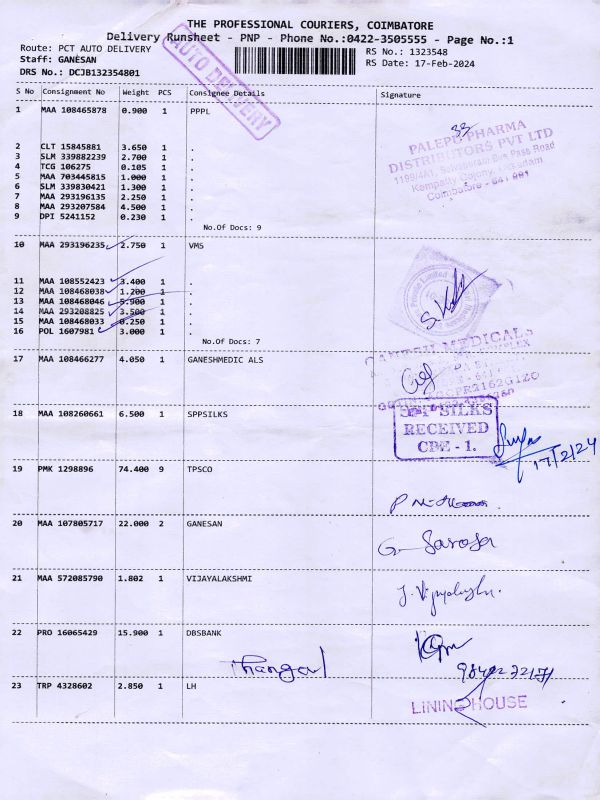 THE PROFESSIONAL COURIERS, COIMBATORE
Delivery Runsheet - PNP - Phone No.:0422-3505555 - Page No.:1
Route: PCT AUTO DELIVERY
RS No.: 1323548
Staff: GANESAN
RS Date: 17-Feb-2024
DRS No.: DCJB132354801
AUTO DELIVERY
S No Consignment No Weight PCS Consignee Details Signature
1 MAA 108465878 0.900 1 PPPL
33
PALEPU PHARMA
DISTRIBUTORS PVT LTD
Coimbatore - 641 001
2 CLT 15845881 3.650 1 .
3 SLM 339882239 2.700 1 .
4 TCG 106275 0.105 1 .
5 MAA 703445815 1.000 1 .
6 SLM 339830421 1.300 1 .
7 MAA 293196135 2.250 1 .
8 MAA 293207584 4.500 1 .
9 DPI 5241152 0.230 1 .
No.Of Docs: 9
10 MAA 293196235 2.750 1 VMS
11 MAA 108552423 3.400 1 .
12 MAA 108468038 1.200 1 .
13 MAA 108468046 5.900 1 .
14 MAA 293208825 3.500 1 .
15 MAA 108468033 0.250 1 .
16 POL 1607981 3.000 1 .
No.Of Docs: 7
17 MAA 108466277 4.050 1 GANESHMEDIC ALS
MEDICALS
18 MAA 108260661 6.500 1 SPPSILKS
SILKS
RECEIVED
CBE - 1.
17/2/24
19 PMK 1298896 74.400 9 TPSCO
20 MAA 107805717 22.000 2 GANESAN
G. Saroja
21 MAA 572085790 1.802 1 VIJAYALAKSHMI
J. Vijayalakshmi
22 PRO 16065429 15.900 1 DBSBANK
Thangal
23 TRP 4328602 2.850 1 LH
LINING HOUSE